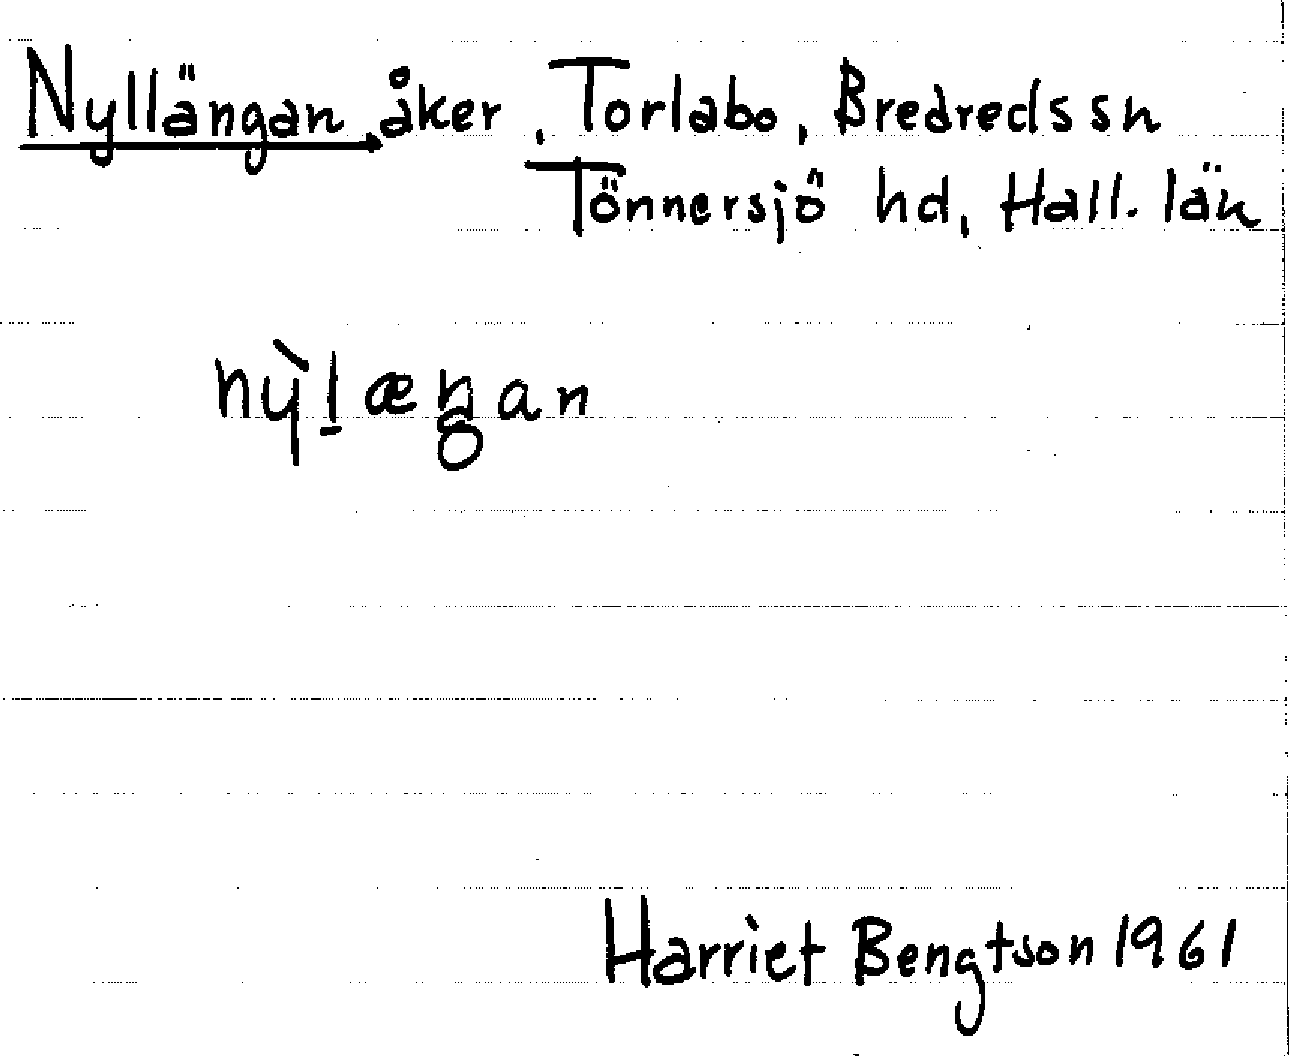 Nyllängan, åker, Torlabo, Bredreds sn
Tönnersjö hd, Hall. län
nỳl̠æŋan
Harriet Bengtson 1961